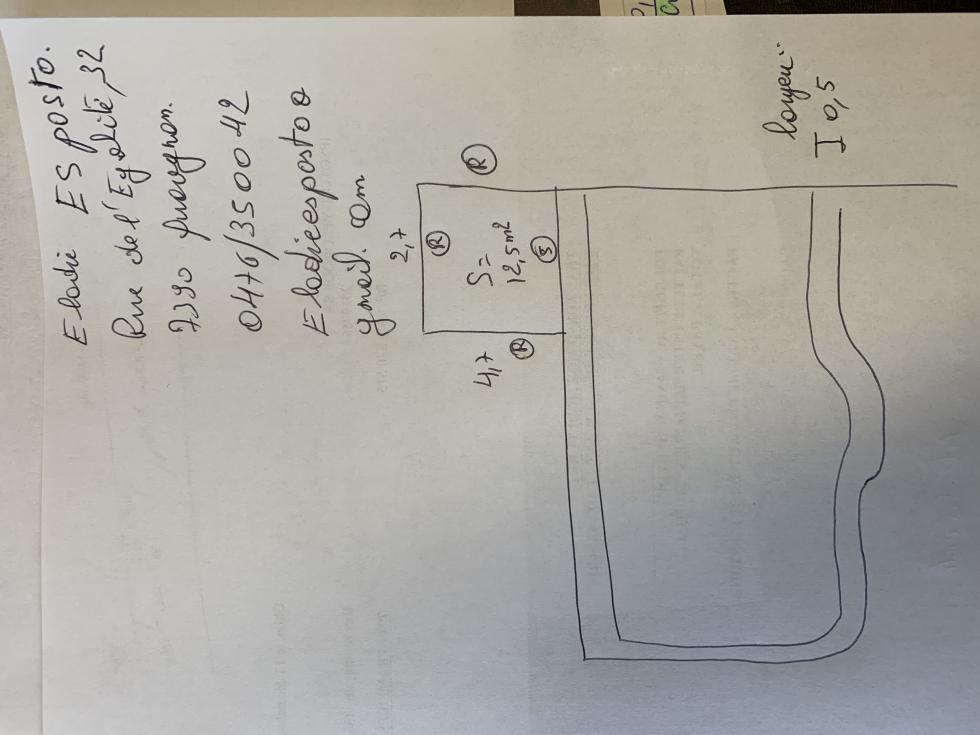 Elodie ESposto.
Rue de l'Egalité, 32
7390 quaregnon.
0476/35 00 42
Elodieesposto@
gmail.com
2,7
R
R
S=
12,5m2
S
4,7
R
largeur
I 0,5